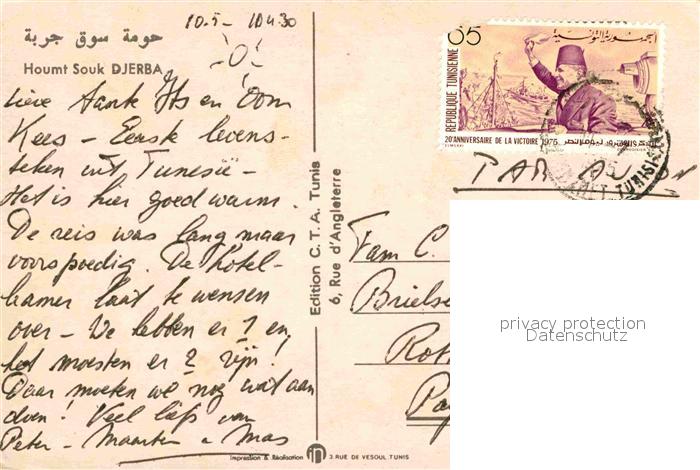 10.5 - 10 u 30
حومة سوق جربة
Houmt Souk DJERBA
Lieve Tante Its en Oom
Kees - Eerste levens-
teken uit Tunesië -
Het is hier goed warm.
De reis was lang maar
voorspoedig. De hotel-
kamer laat te wensen
over - We hebben er 1 en
het moesten er 2 zijn!
Daar moeten we nog wat aan
doen! Veel liefs van
Peter - Maarten
Edition C. T. A. Tunis
6, Rue d'Angleterre
65
الجمهورية التونسية
REPUBLIQUE TUNISIENNE
20e ANNIVERSAIRE DE LA VICTOIRE 1975
PAR AVION
Fam C.
Brielse
Rott
Pa
privacy protection
Datenschutz
Impression & Réalisation in 3 RUE DE VESOUL TUNIS